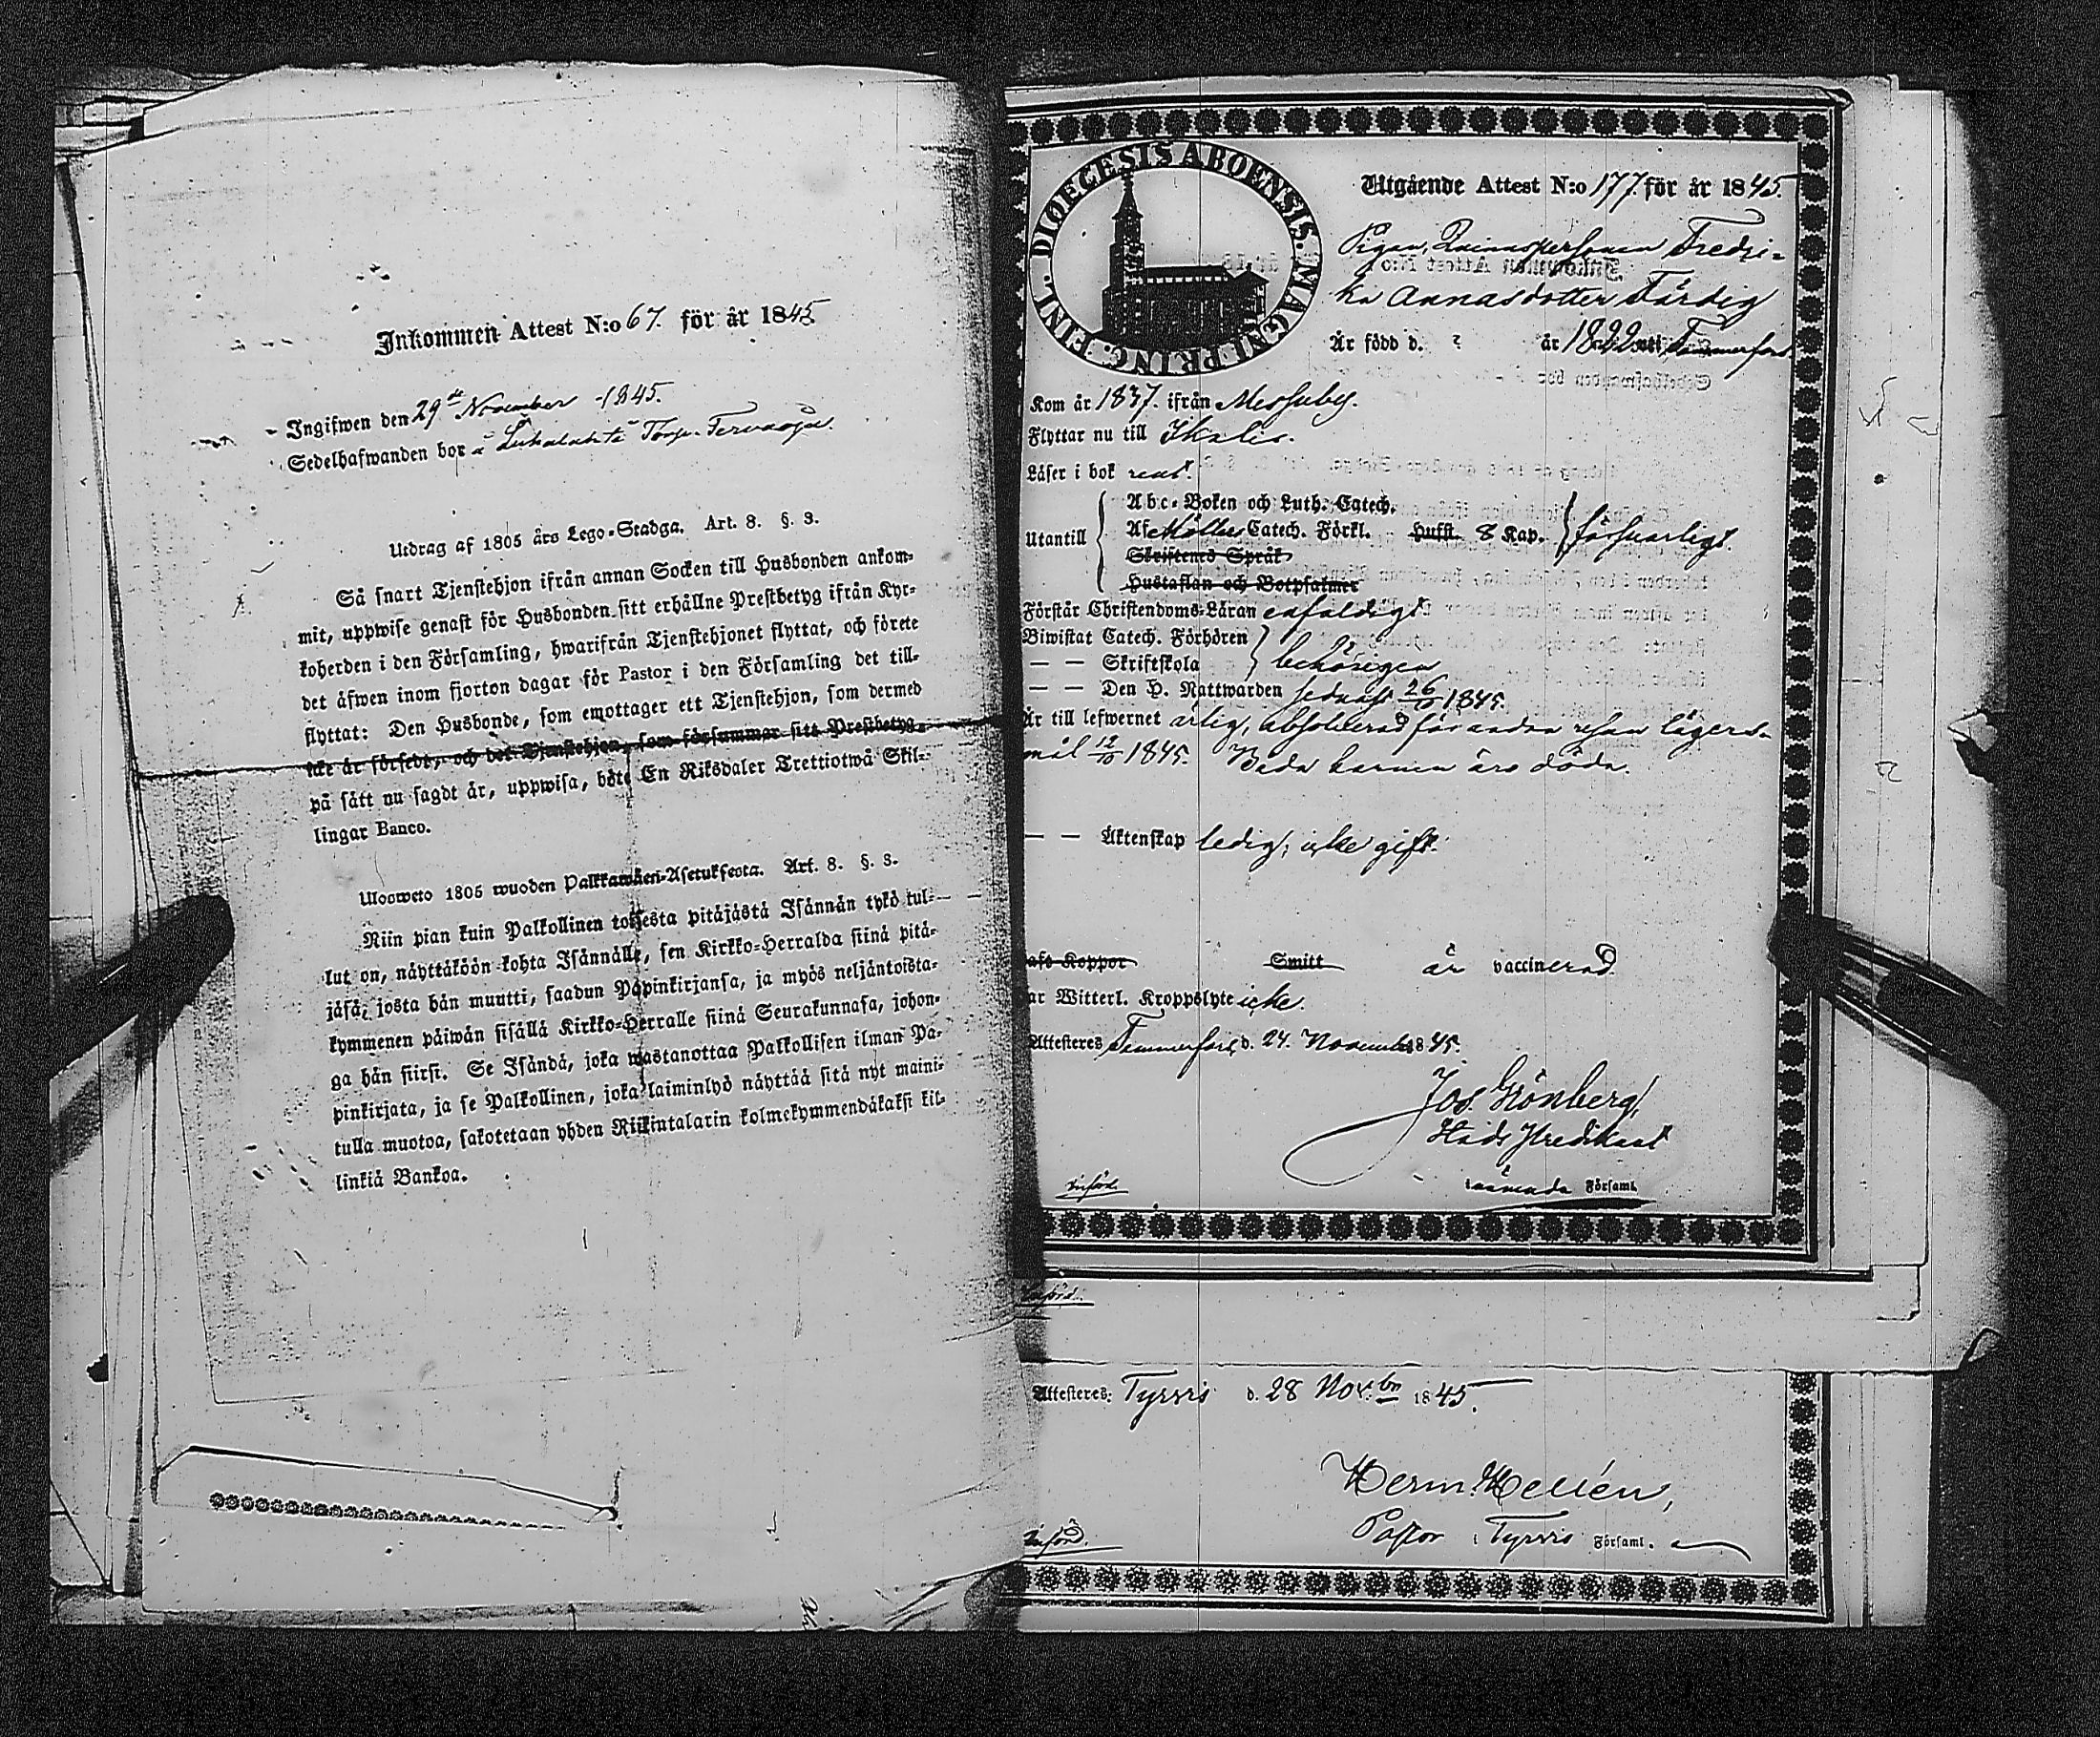 Inkommen Attest N:o 67. för år 1845.
Ingifwen den 29de November 1845.
Sedelhafwanden bor å Torp. Tervaoja.
Utdrag af 1805 års Lego-Stadga. Art. 8. §. 3.
Så snart Tjenstehjon ifrån annan Socken till Husbonden ankom-
mit, uppwise genast för Husbonden sitt erhållne Prestbetyg ifrån Kyr-
koherden i den Församling, hwarifrån Tjenstehjonet flyttat, och förete
det åfwen inom fjorton dagar för Pastor i den Församling det till-
flyttat: Den Husbonde, som emottager ett Tjenstehjon, som dermed
icke är försedt, och det Tjenstehjon, som försummar sitt Prestbetyg,
på sätt nu sagdt är, uppwisa, böte En Riksdaler Trettiotwå Skil-
lingar Banco.
Ulosweto 1805 wuoden Palkkawäen-Asetuksesta. Art. 8. §. 3.
Niin pian kuin Palkollinen toisesta pitäjästä Isännän tykö tul-
lut on, näyttäköön kohta Isännälle, sen Kirkko-Herralda siinä pitä-
jäsä, josta hän muutti, saadun Papinkirjansa, ja myös neljäntoista-
kymmenen päiwän sisällä Kirkko-Herralle siinä Seurakunnasa, johon-
ga hän siirsi. Se Isändä, joka wastanottaa Palkollisen ilman Pa-
pinkirjata, ja se Palkollinen, joka laiminlyö näyttää sitä nyt maini-
tulla muotoa, sakotetaan yhden Riikintalarin kolmekymmendäkaksi kil-
linkiä Bankoa.
DIOECESIS ABOENSIS. MAGNI PRINC. FINL.
Utgående Attest N:o 177. för år 1845.
Pigan, Qvinnspersonen Fredri-
ka Annasdotter Färdig
Är född d. ? år 1822 uti Tammerfors
Kom år 1837. ifrån Messuby.
Flyttar nu till Ikalis.
Läser i bok rent.
Utantill
Abc-Boken och Luth. Catech.
Af Möllers Catech. Förkl. Hufst. 8 Kap. försvarligt.
Skriftenes Språk
Hustaflan och Botpsalmer
Förstår Christendoms-Läran enfaldigt.
Biwistat Catech. Förhören
— — Skriftskola behörigen
— — Den H. Nattwarden sednast 26/10 1845.
Är till lefwernet ärlig, absolverad för andra resan lägers-
mål 12/10 1845. Båda barnen äro döda.
— — Äktenskap ledig; icke gift.
haft Koppor Smitt är vaccinerad
har Witterl. Kroppslyte icke.
Attesteres Tammerfors, d. 24. November 1845.
Jos. Grönberg,
Införd.
nämnda Församl.
Införd.
Attesteres: Tyrvis d. 28 Nov:br 1845.
Herm. Hellén,
Pastor i Tyrvis Församl.
Införd.